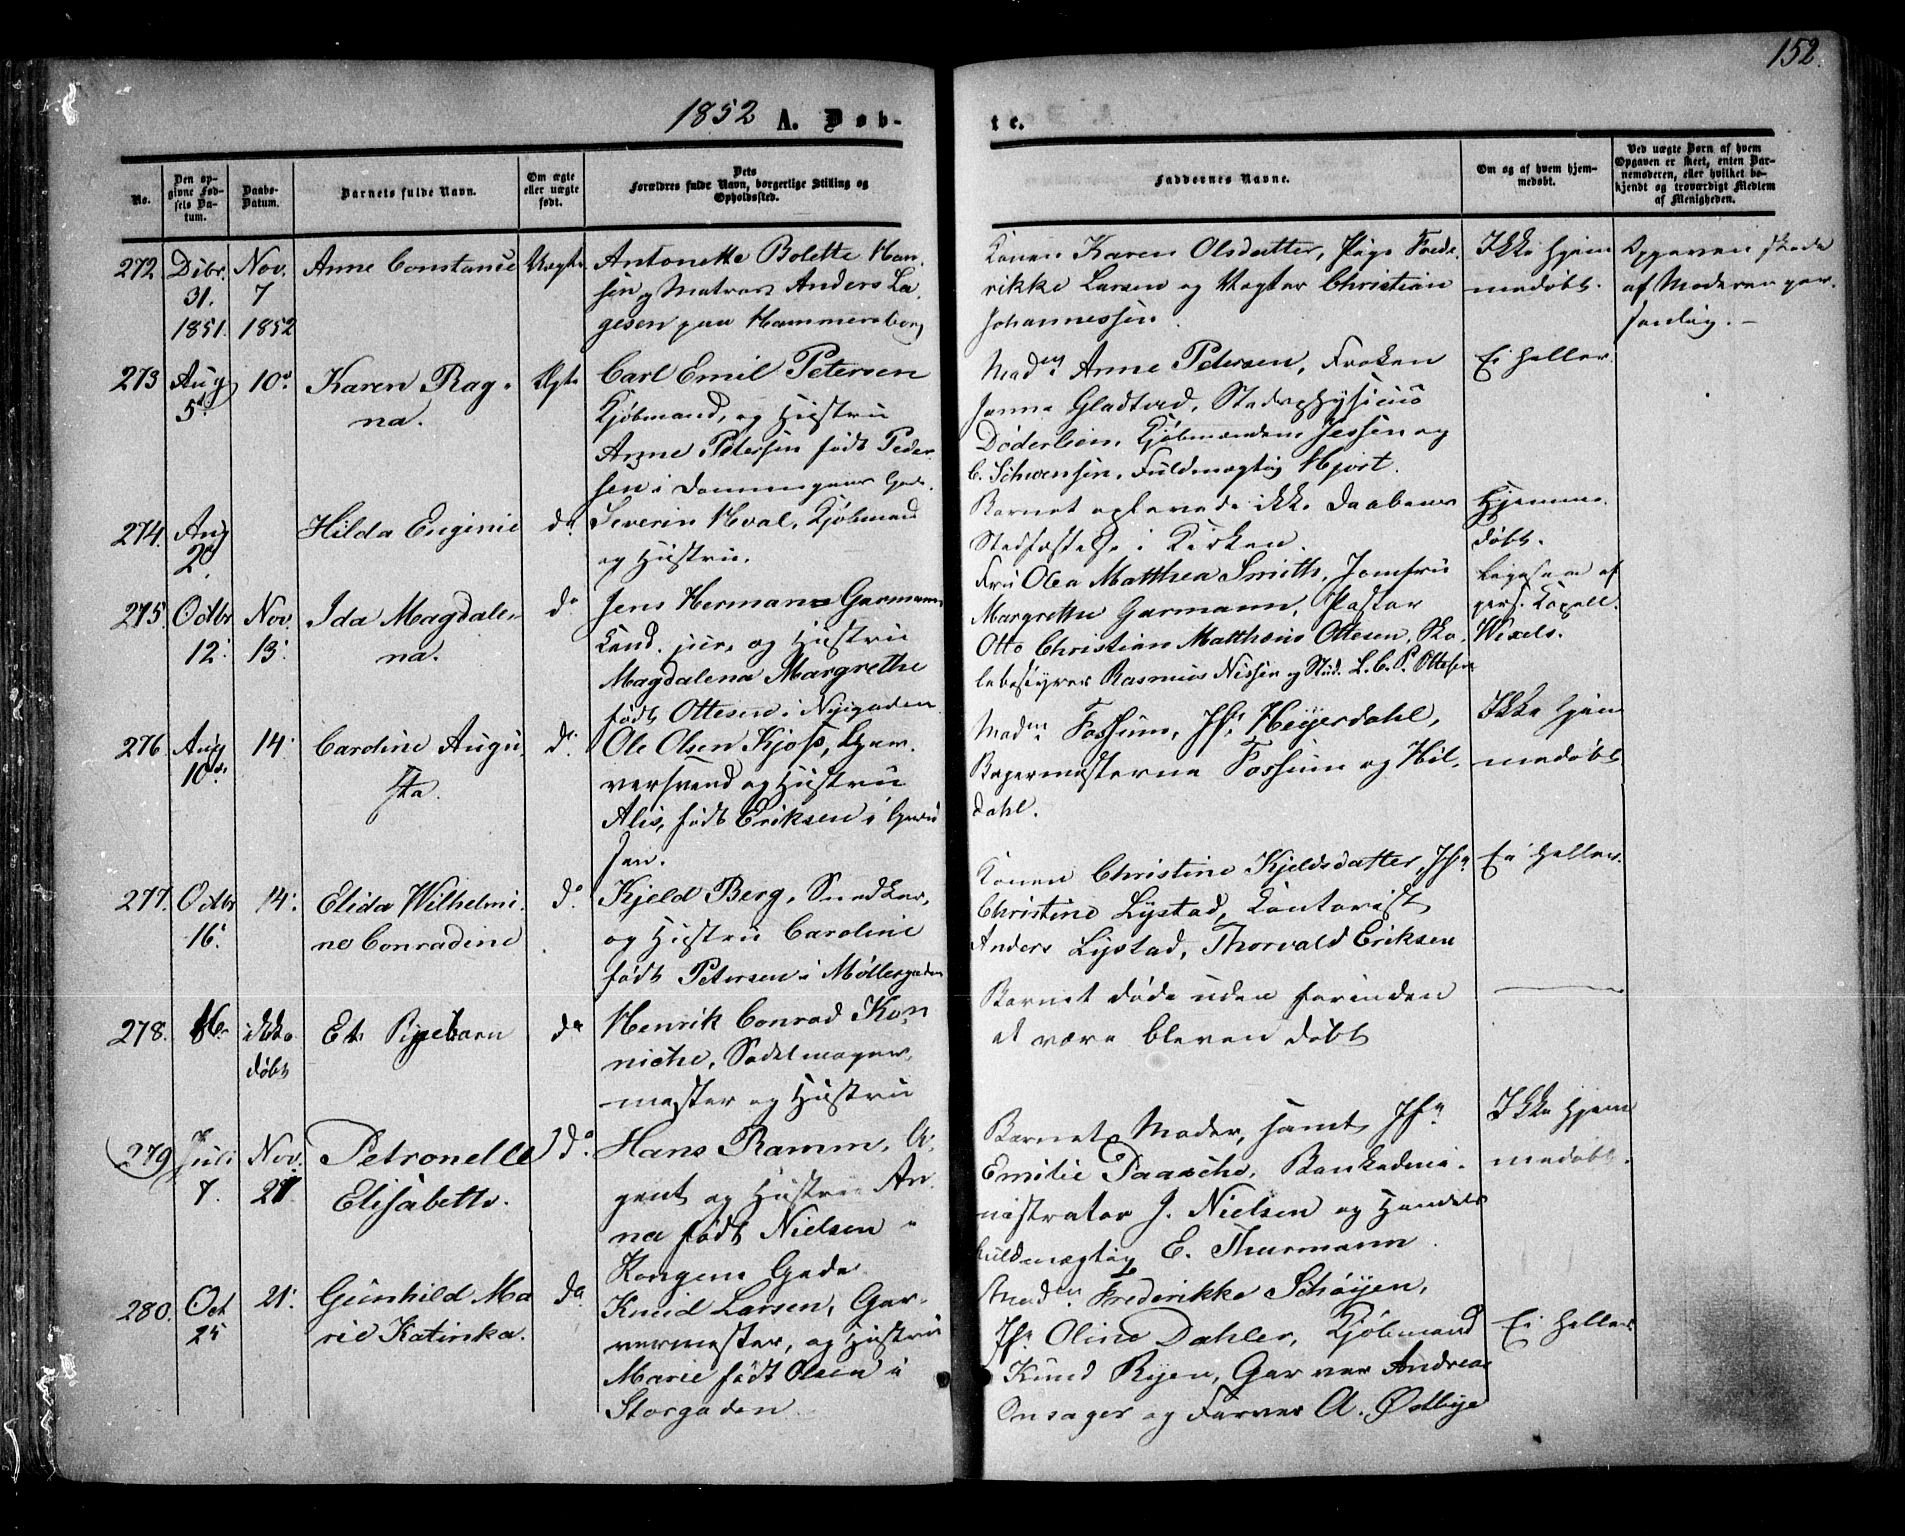 152.
1852 A. Døb-
te.
No.
Den op-
givne Fød-
sels Da-
tum.
Daabs-
Datum.
Barnets fulde Navn.
Om ægte
eller uægte
født.
Dets
Forældres fulde Navn, borgerlige Stilling og
Opholdssted.
Faddernes Navne.
Om og af hvem hjem-
medøbt.
Ved uægte Børn af hvem
Opgaven er skeet, enten Bar-
nemoderen, eller hvilket be-
kjendt og troværdigt Medlem
af Menigheden.
272
Dcbr.
31.
1851.
Nov.
7
1852
Anne Constance
Uægte
Antonette Bolette Han-
sen og Matros Anders La-
gesen paa Hammersborg
Konen Karen Olsdatter, Pige Frede-
rikke Larsen og Vægter Christian
Johannessen.
Ikke hjem
medøbt.
Opgaven skede
af Moderen per-
sonlig. -
273
Aug
5.
10.
Karen Rag-
na.
Ægte
Carl Emil Petersen
Kjøbmand, og Hustru
Anne Petersen født Peder-
sen i
Madm Anne Petersen, Frøken
Janna Gladtvet, Stadsphysicus
Døderlein, Kjøbmændene Jessen og
C. Schwensen, Fuldmægtig Hjort.
Ei heller.
274.
Aug
20.
Hilda Euginie
do.
Severin Hval, Kjøbmand
og Hustru.
Barnet oplevede ikke Daabens
Stadfæstelse i Kirken.
Hjemme-
døbt.
275.
Octbr
12.
Nov.
13.
Ida Magdale-
na.
do
Jens Herman Garmann
Cand. jur. og Hustru
Magdalena Margrethe
født Ottesen i Nygaden
Fru Olea Matthea Smith, Jomfru
Margrethe Garmann, Pastor
Otto Christian Matthæus Ottesen, Sko-
lebestyrer Rasmus Nissen og Stud. L. C. P. Ottesen
Ligesaa af
pers. Kapell.
Wexels.
276.
Aug
10.
14.
Caroline Augu-
sta.
do.
Ole Olsen Kjos, Gar-
versvend og Hustru
Alis, født Eriksen i Grænd
sen.
Madm. Fossum, Jfr. Heyerdahl,
Bagermesterne Fossum og Hil-
dahl.
Ikke hjem
medøbt
277.
Octbr
16.
14.
Elida Wilhelmi-
ne Conradine
do.
Kjeld Berg, Snedker,
og Hustru Caroline
født Petersen i Møllergaden
Konen Christine Kjeldsdatter, Jfr
Christine Lystad, Contorist
Anders Lystad, Thorvald Eriksen
Ei heller.
278.
ikke
døbt
Et Pigebarn
do
Henrik Conrad Kon
niche, Sadelmager-
mester og Hustru
Barnet døde uden forinden
at være bleven døbt
279
Juli
7.
Nov.
21
Petronelle
Elisabeth.
do.
Hans Ramm, A-
gent og Hustru An-
na født Nielsen i
Kongens Gade
Barnets Moder, samt Jfr
Emilie Paasche, Bankadmi-
nistrator J. Nielsen og Handels
fuldmægtig E. Thurmann.
Ikke hjem
medøbt.
280.
Oct
25
21.
Gunhild Ma
rie Katinka.
do
Knud Larsen, Gar-
vermester, og Hustru
Marie født Olsen i
Storgaden
Madm. Frederikke Schøyen,
Jfr Oline Dahler, Kjøbmand
Knud Ryen, Garver Andreas
Onsager og Farver A. Østbye
Ei heller